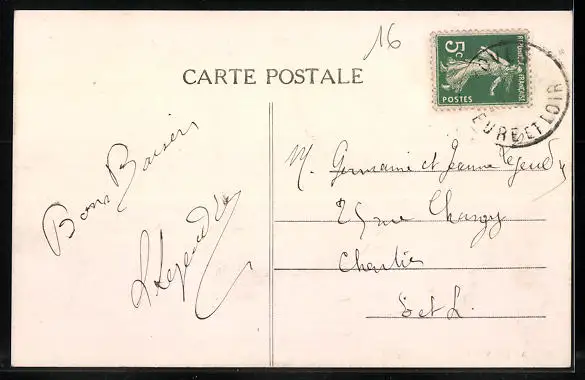 16
CARTE POSTALE
5c
REPUBLIQUE FRANÇAISE
POSTES
EURE ET LOIR
Bons Baisers
M. Germaine et Jeanne Legendre
25 rue Changy
Chartres
E et L.
LLegendre